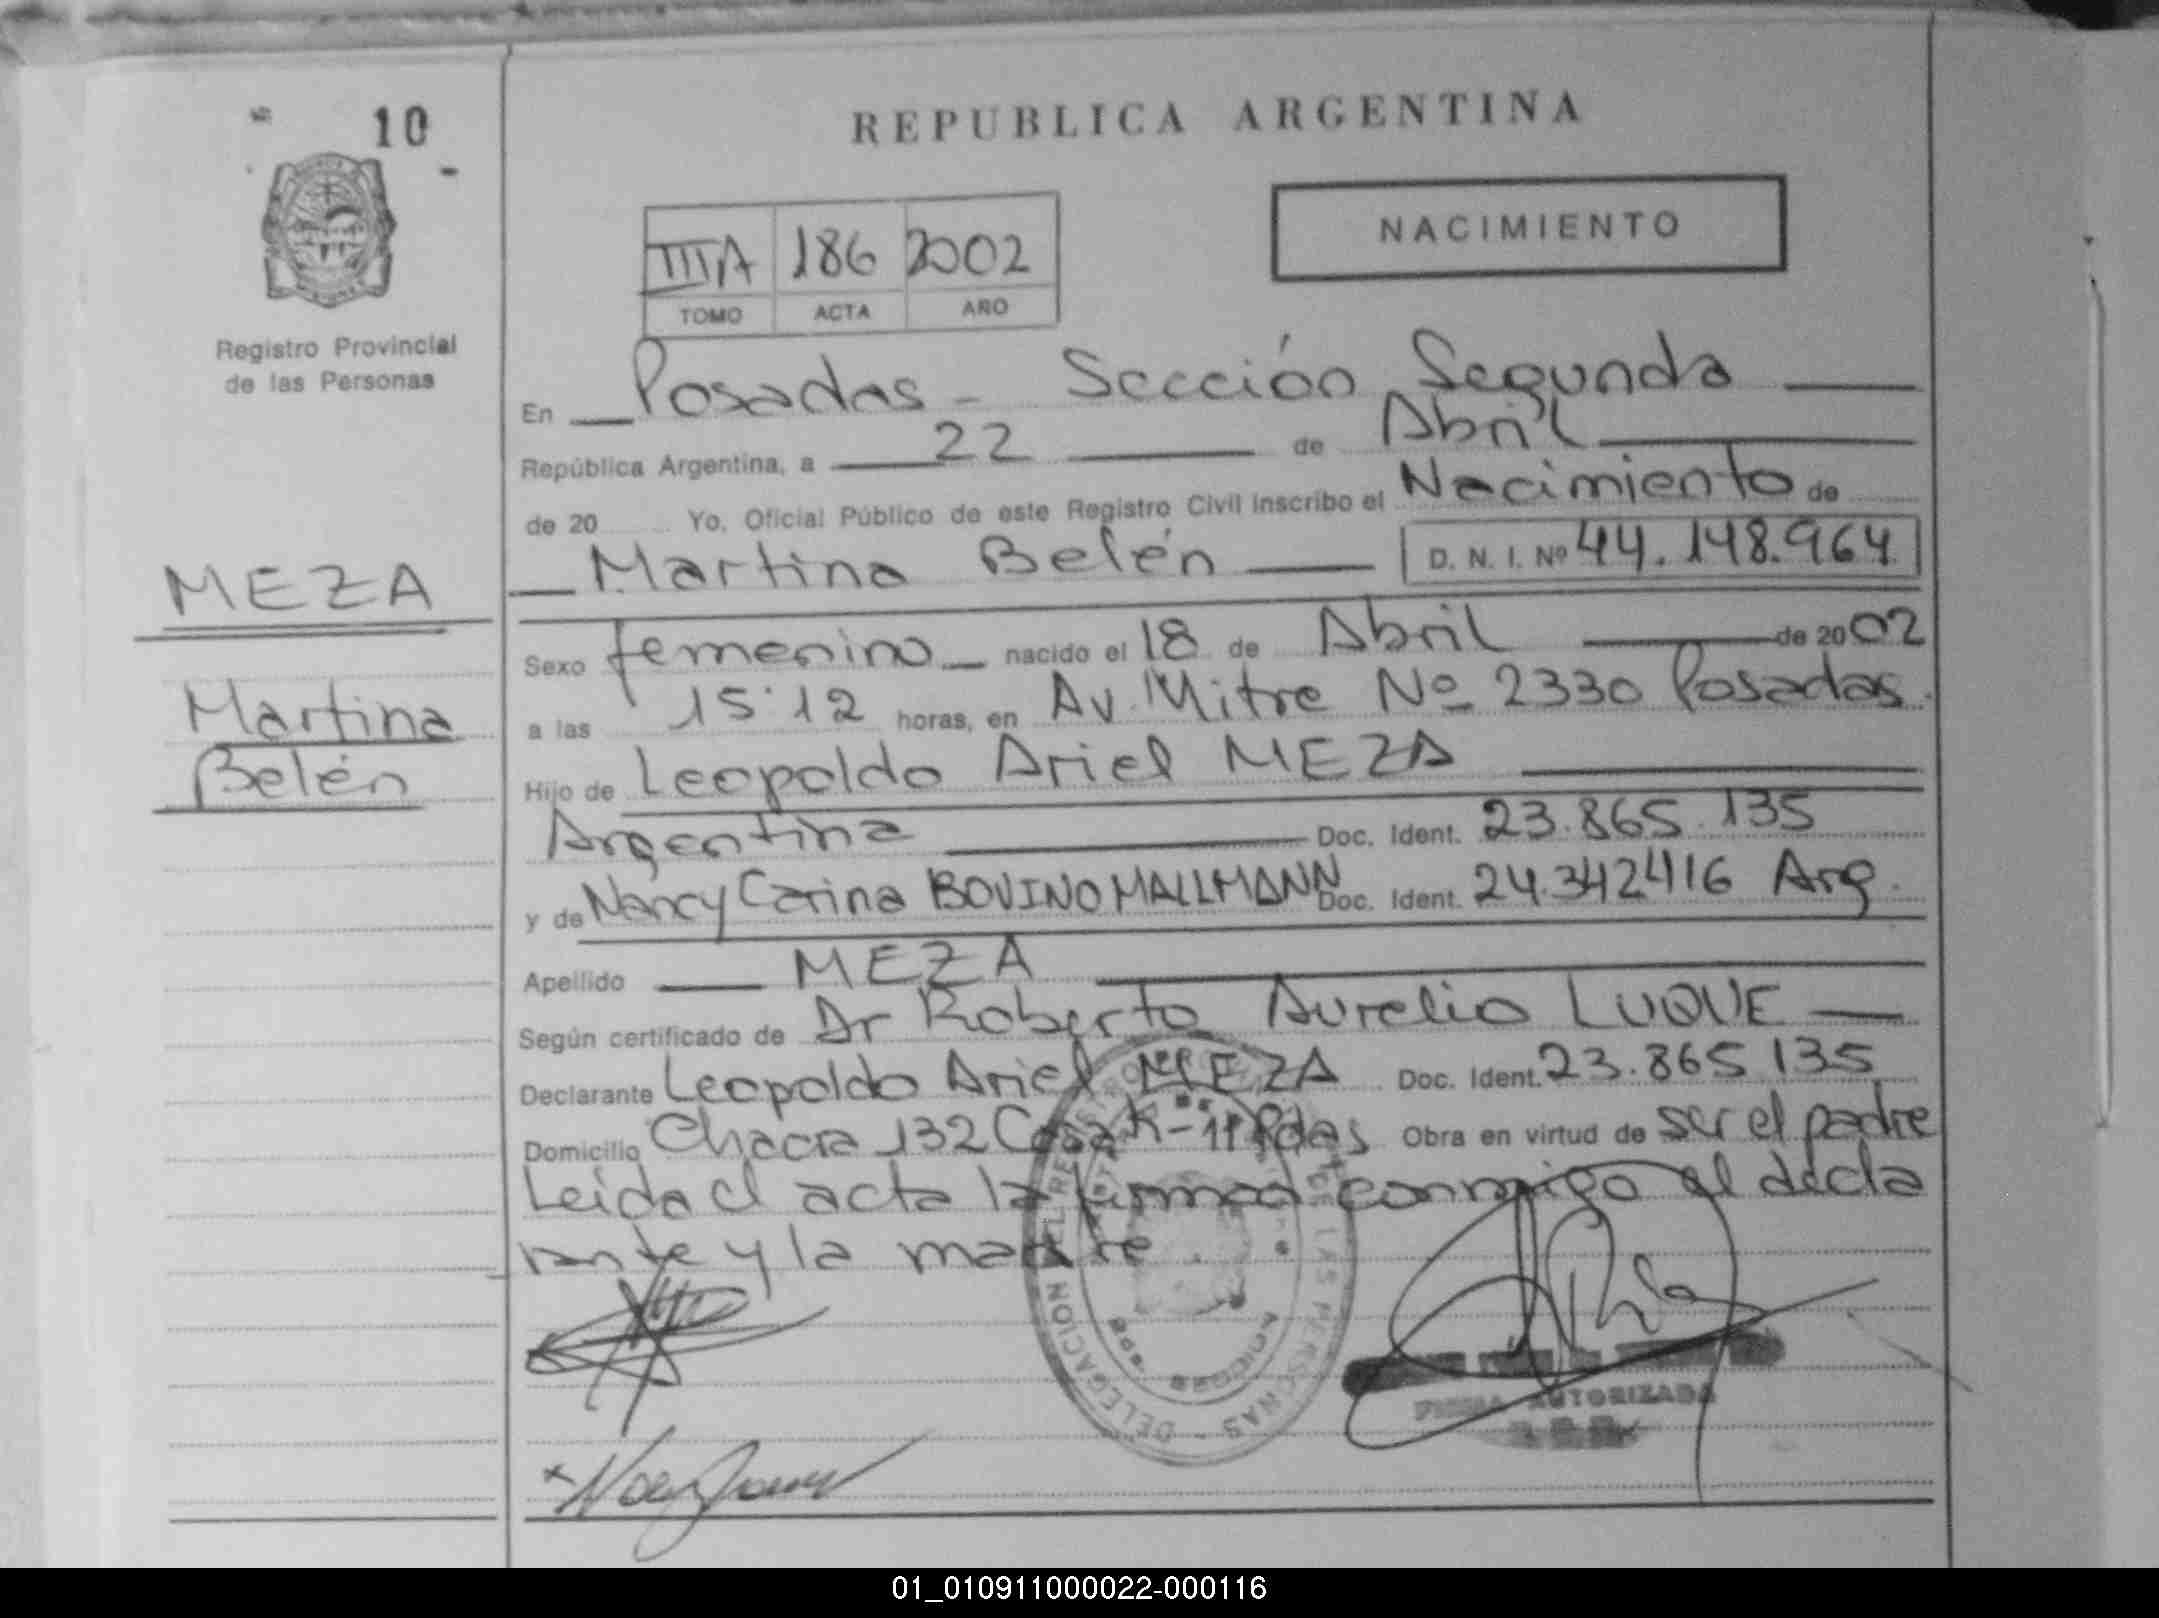 10
REPUBLICA ARGENTINA
NACIMIENTO
IIIA 186 2002
TOMO ACTA AÑO
Registro Provincial
de las Personas
En Posadas - Sección Segunda
República Argentina, a 22 de Abril
de 20 Yo, Oficial Público de este Registro Civil inscribo el Nacimiento de
Martina Belén D. N. I. Nº 44.148.964
MEZA
Martina
Belén
Sexo femenino nacido el 18 de Abril de 2002
a las 15:12 horas, en Av. Mitre Nº 2330 Posadas.
Hijo de Leopoldo Ariel MEZA
Argentina Doc. Ident. 23.865.135
y de Nancy Carina BOVINO MALLMANN Doc. Ident. 24.342416 Arg.
Apellido MEZA
Según certificado de Dr Roberto Aurelio LUQUE
Declarante Leopoldo Ariel MEZA Doc. Ident. 23.865 135
Domicilio Chacra 132 Casa K-11 Pdas Obra en virtud de ser el padre
Leida el acta la firman conmigo el decla
rante y la madre
DELEGACION DEL REGISTRO DE LAS PERSONAS
FIRMA AUTORIZADA
01_010911000022-000116